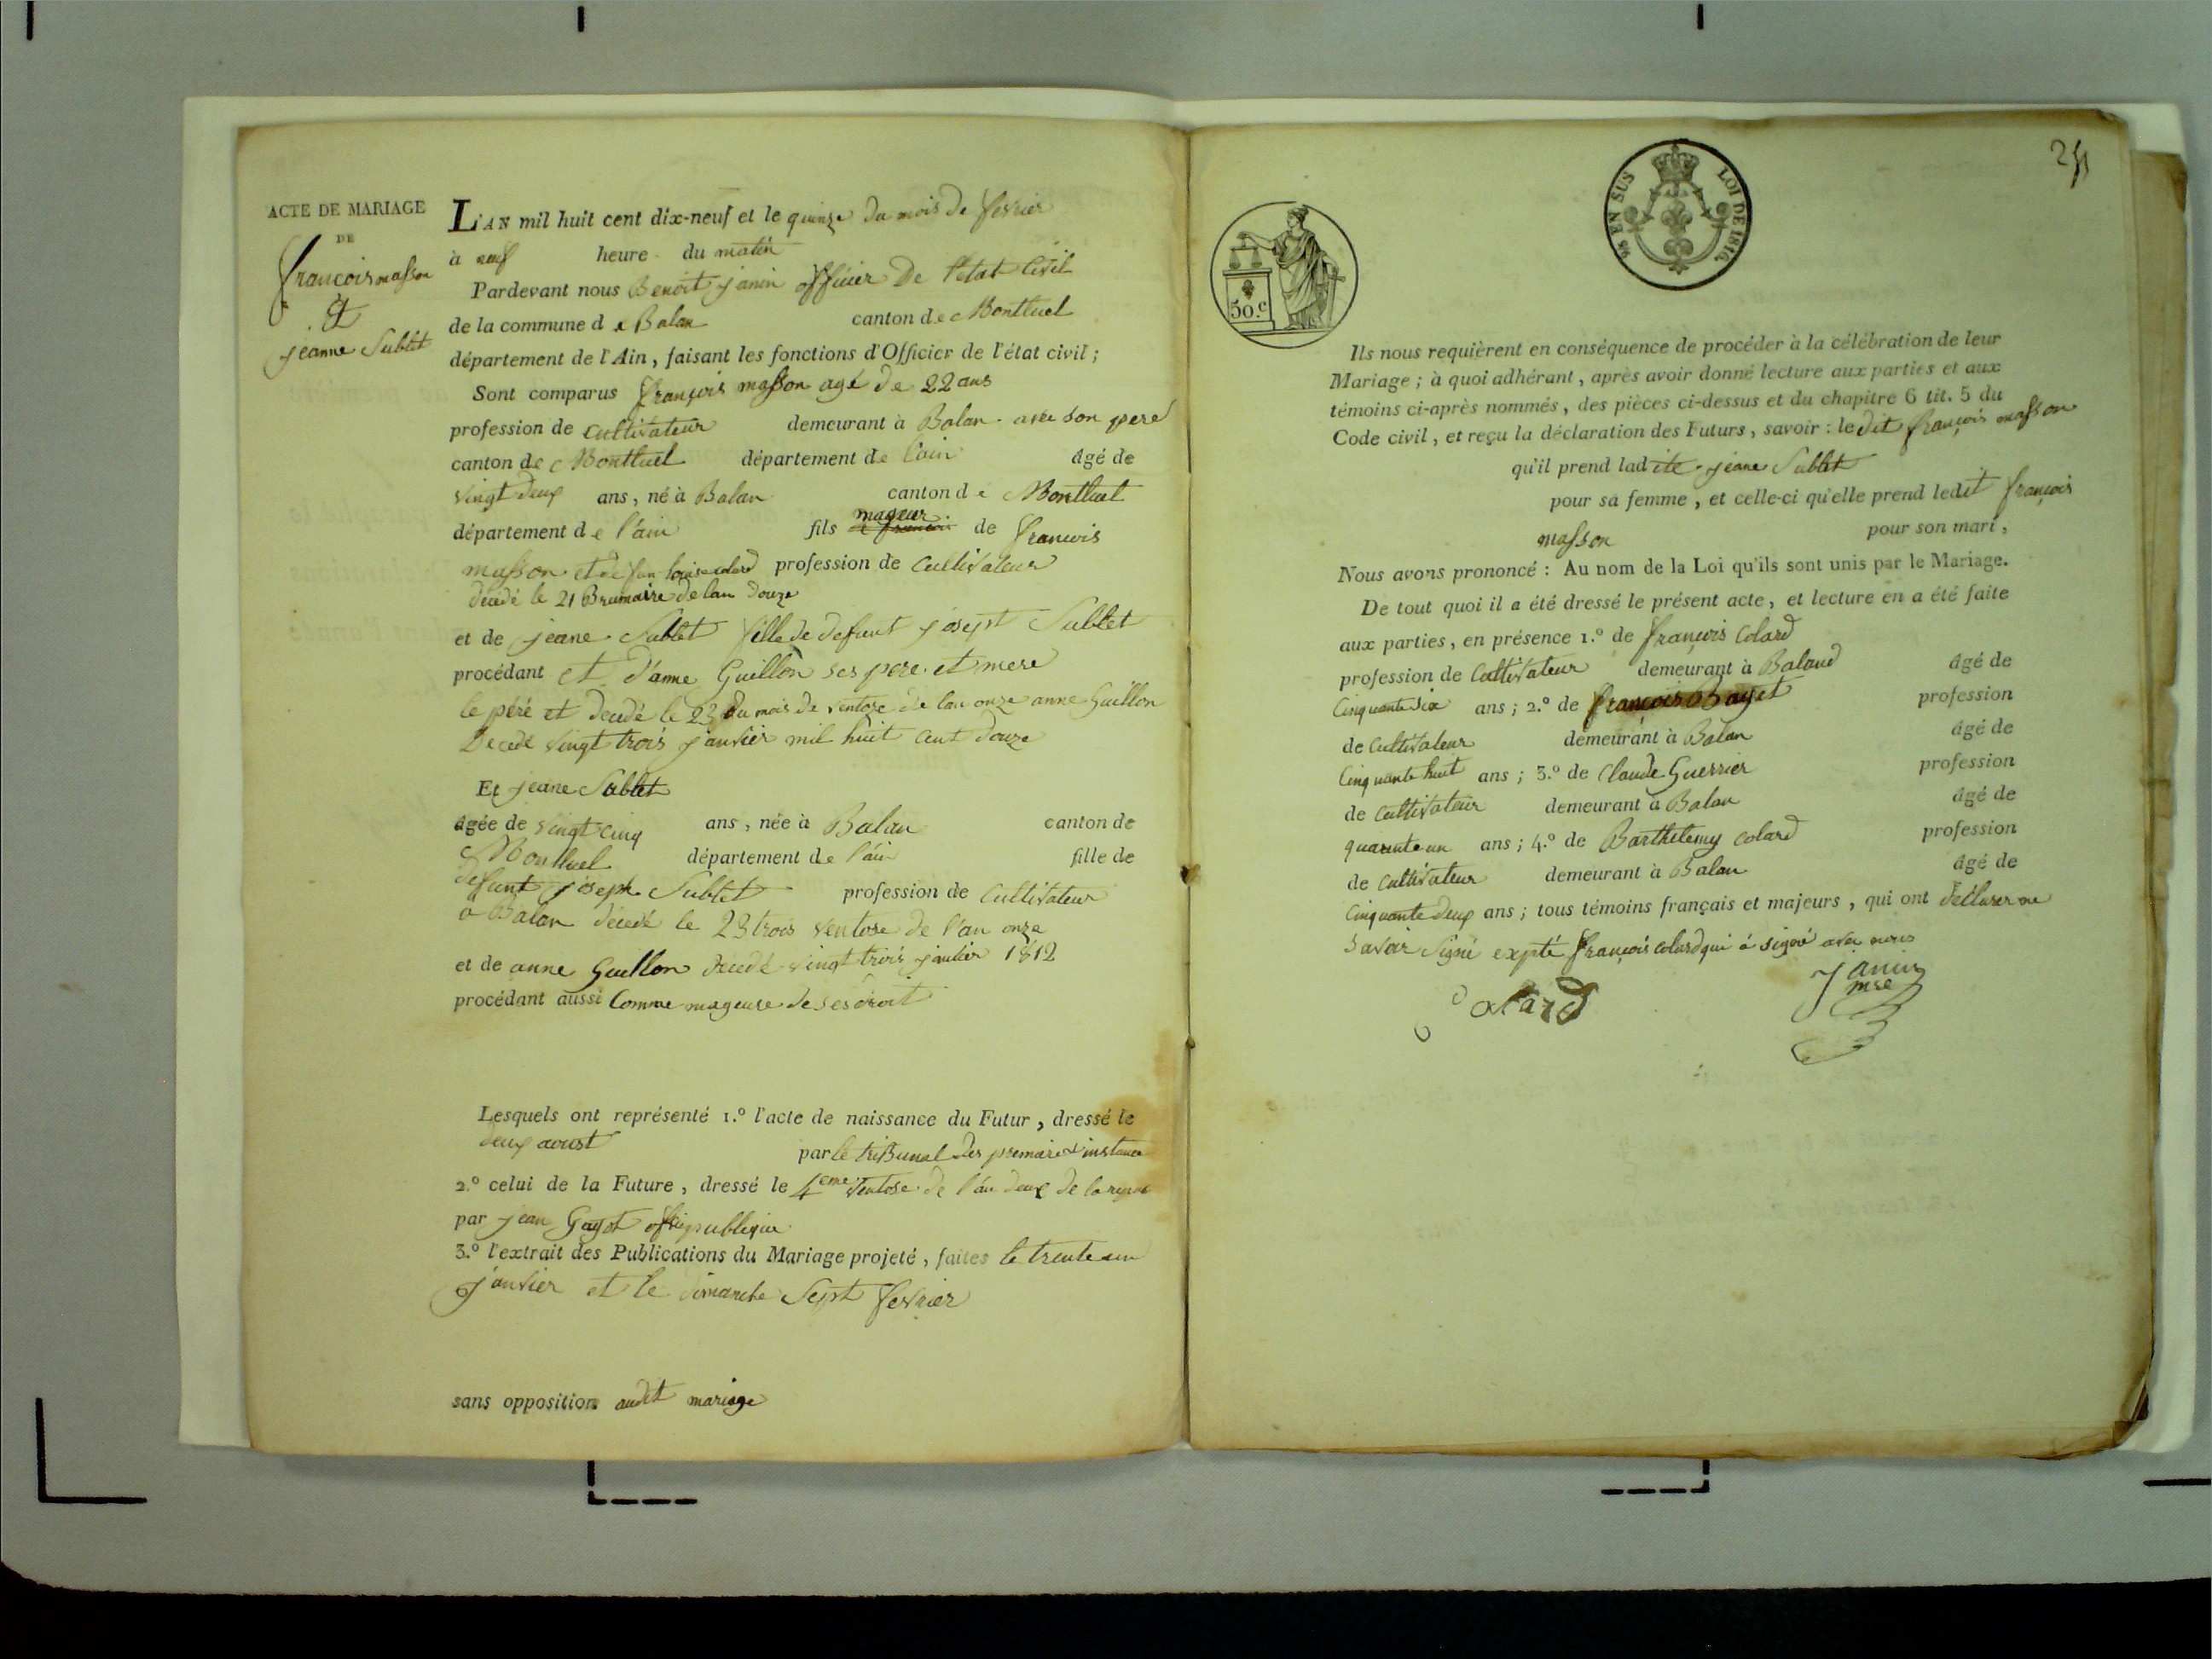 ACTE DE MARIAGE
DE
françois masson
et
jeanne Sublet
L'AN mil huit cent dix-neuf et le quinze du mois de fevrier
à neuf heure du matin
Pardevant nous Benoit janin officier De l'état Civil
de la commune de Balan canton de Montluel
département de l'Ain, faisant les fonctions d'Officier de l'état civil ;
Sont comparus françois masson agé de 22 ans
profession de cultivateur demeurant à Balan avec son pere
canton de Montluel département de l'ain âgé de
vingt deux ans, né à Balan canton de Montluel
mageur
département de l'ain fils de francois
masson et de feu louise colard profession de cultivateur
décédé le 21 Brumaire de lan douze
et de jeane Sublet fille de defunt josept Sublet
procédant et d'anne Guillon ses pere et mere
le péré et decedé le 23 du mois de ventose de lan onze anne Guillon
Decedé vingt trois janvier mil huit cent douze
Et jeane Sublet
âgée de vingt cinq ans, née à Balan canton de
Montluel département de l'ain fille de
defunt joseph Sublet profession de cultivateur
a Balan décedé le 23 trois ventose de l'an onze
et de anne Guillon decedé vingt trois janvier 1812
procédant aussi Comme mageure de ses droit
Lesquels ont représenté 1.º l'acte de naissance du Futur, dressé le
deux aoust par le triBunal des premaire instance
2.º celui de la Future, dressé le 4eme ventose de l'an deux de la
par jean Gayot publique
3.º l'extrait des Publications du Mariage projeté, faites le trente un
janvier et le dimanche Sept fevrier
sans opposition audit mariage
25 EN SUS LOI DE 1816.
50.c
Ils nous requièrent en conséquence de procéder à la célébration de leur
Mariage ; à quoi adhérant, après avoir donné lecture aux parties et aux
témoins ci-après nommés, des pièces ci-dessus et du chapitre 6 tit. 5 du
Code civil, et reçu la déclaration des Futurs, savoir : le dit françois masson
qu'il prend ladite jeane Sublet
pour sa femme, et celle-ci qu'elle prend ledit françois
masson pour son mari,
Nous avons prononcé : Au nom de la Loi qu'ils sont unis par le Mariage.
De tout quoi il a été dressé le présent acte, et lecture en a été faite
aux parties, en présence 1.º de françois Colard
profession de Cultivateur demeurant à Baland âgé de
Cinquante six ans ; 2.º de françois Bayet profession
de Cultivateur demeurant à Balan âgé de
Cinquante huit ans ; 3.º de Claude Guerrier profession
de cultivateur demeurant à Balan âgé de
quarante un ans ; 4.º de Barthelemy Colard profession
de cultivateur demeurant à Balan âgé de
Cinquante deux ans ; tous témoins français et majeurs, qui ont déClarer ne
savoir signé expté françois colard qui á signé avec nous
colard
janin
mre